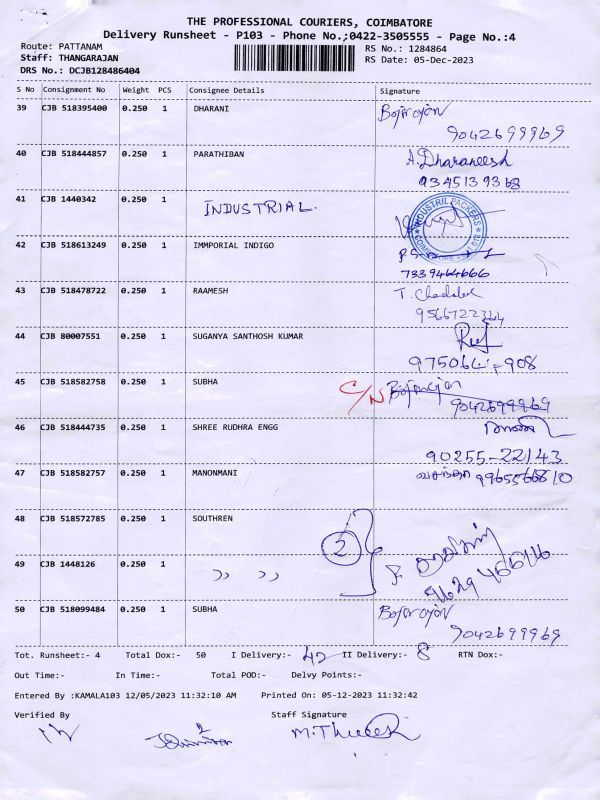 THE PROFESSIONAL COURIERS, COIMBATORE
Delivery Runsheet - P103 - Phone No.;0422-3505555 - Page No.:4
Route: PATTANAM
RS No.: 1284864
Staff: THANGARAJAN
RS Date: 05-Dec-2023
DRS No.: DCJB128486404
S No Consignment No Weight PCS Consignee Details Signature
39 CJB 518395400 0.250 1 DHARANI
9042699969
40 CJB 518444857 0.250 1 PARATHIBAN A. Dharaneesh
9345139368
41 CJB 1440342 0.250 1 INDUSTRIAL.
INDUSTRIL PACKERS
COIMBATORE
42 CJB 518613249 0.250 1 IMMPORIAL INDIGO
7339464666
43 CJB 518478722 0.250 1 RAAMESH T.
9566722364
44 CJB 80007551 0.250 1 SUGANYA SANTHOSH KUMAR
45 CJB 518582758 0.250 1 SUBHA C/N
9042699969
46 CJB 518444735 0.250 1 SHREE RUDHRA ENGG
90255-22143
47 CJB 518582757 0.250 1 MANONMANI வசந்தா
48 CJB 518572785 0.250 1 SOUTHREN
2
49 CJB 1448126 0.250 1 ,, ,,
50 CJB 518099484 0.250 1 SUBHA
9042699969
Tot. Runsheet:- 4 Total Dox:- 50 I Delivery:- 42 II Delivery:- 8 RTN Dox:-
Out Time:- In Time:- Total POD:- Delvy Points:-
Entered By :KAMALA103 12/05/2023 11:32:10 AM Printed On: 05-12-2023 11:32:42
Verified By Staff Signature